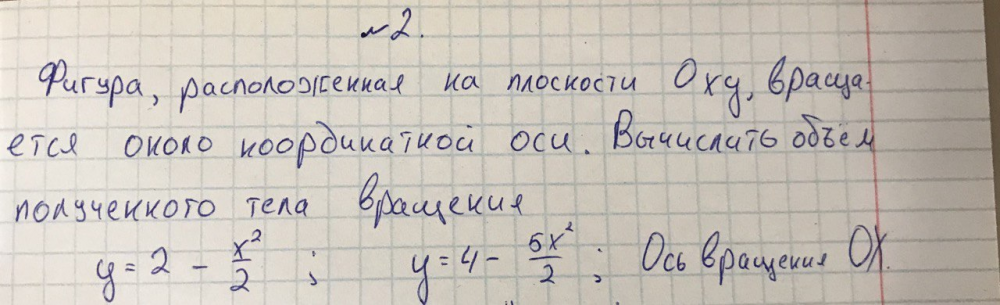 №2.
Фигура, расположенная на плоскости Oxy, враща-
ется около координатной оси. Вычислить объём
полученного тела вращения
y = 2 - x²/2 ; y = 4 - 5x²/2 ; Ось вращения OX.